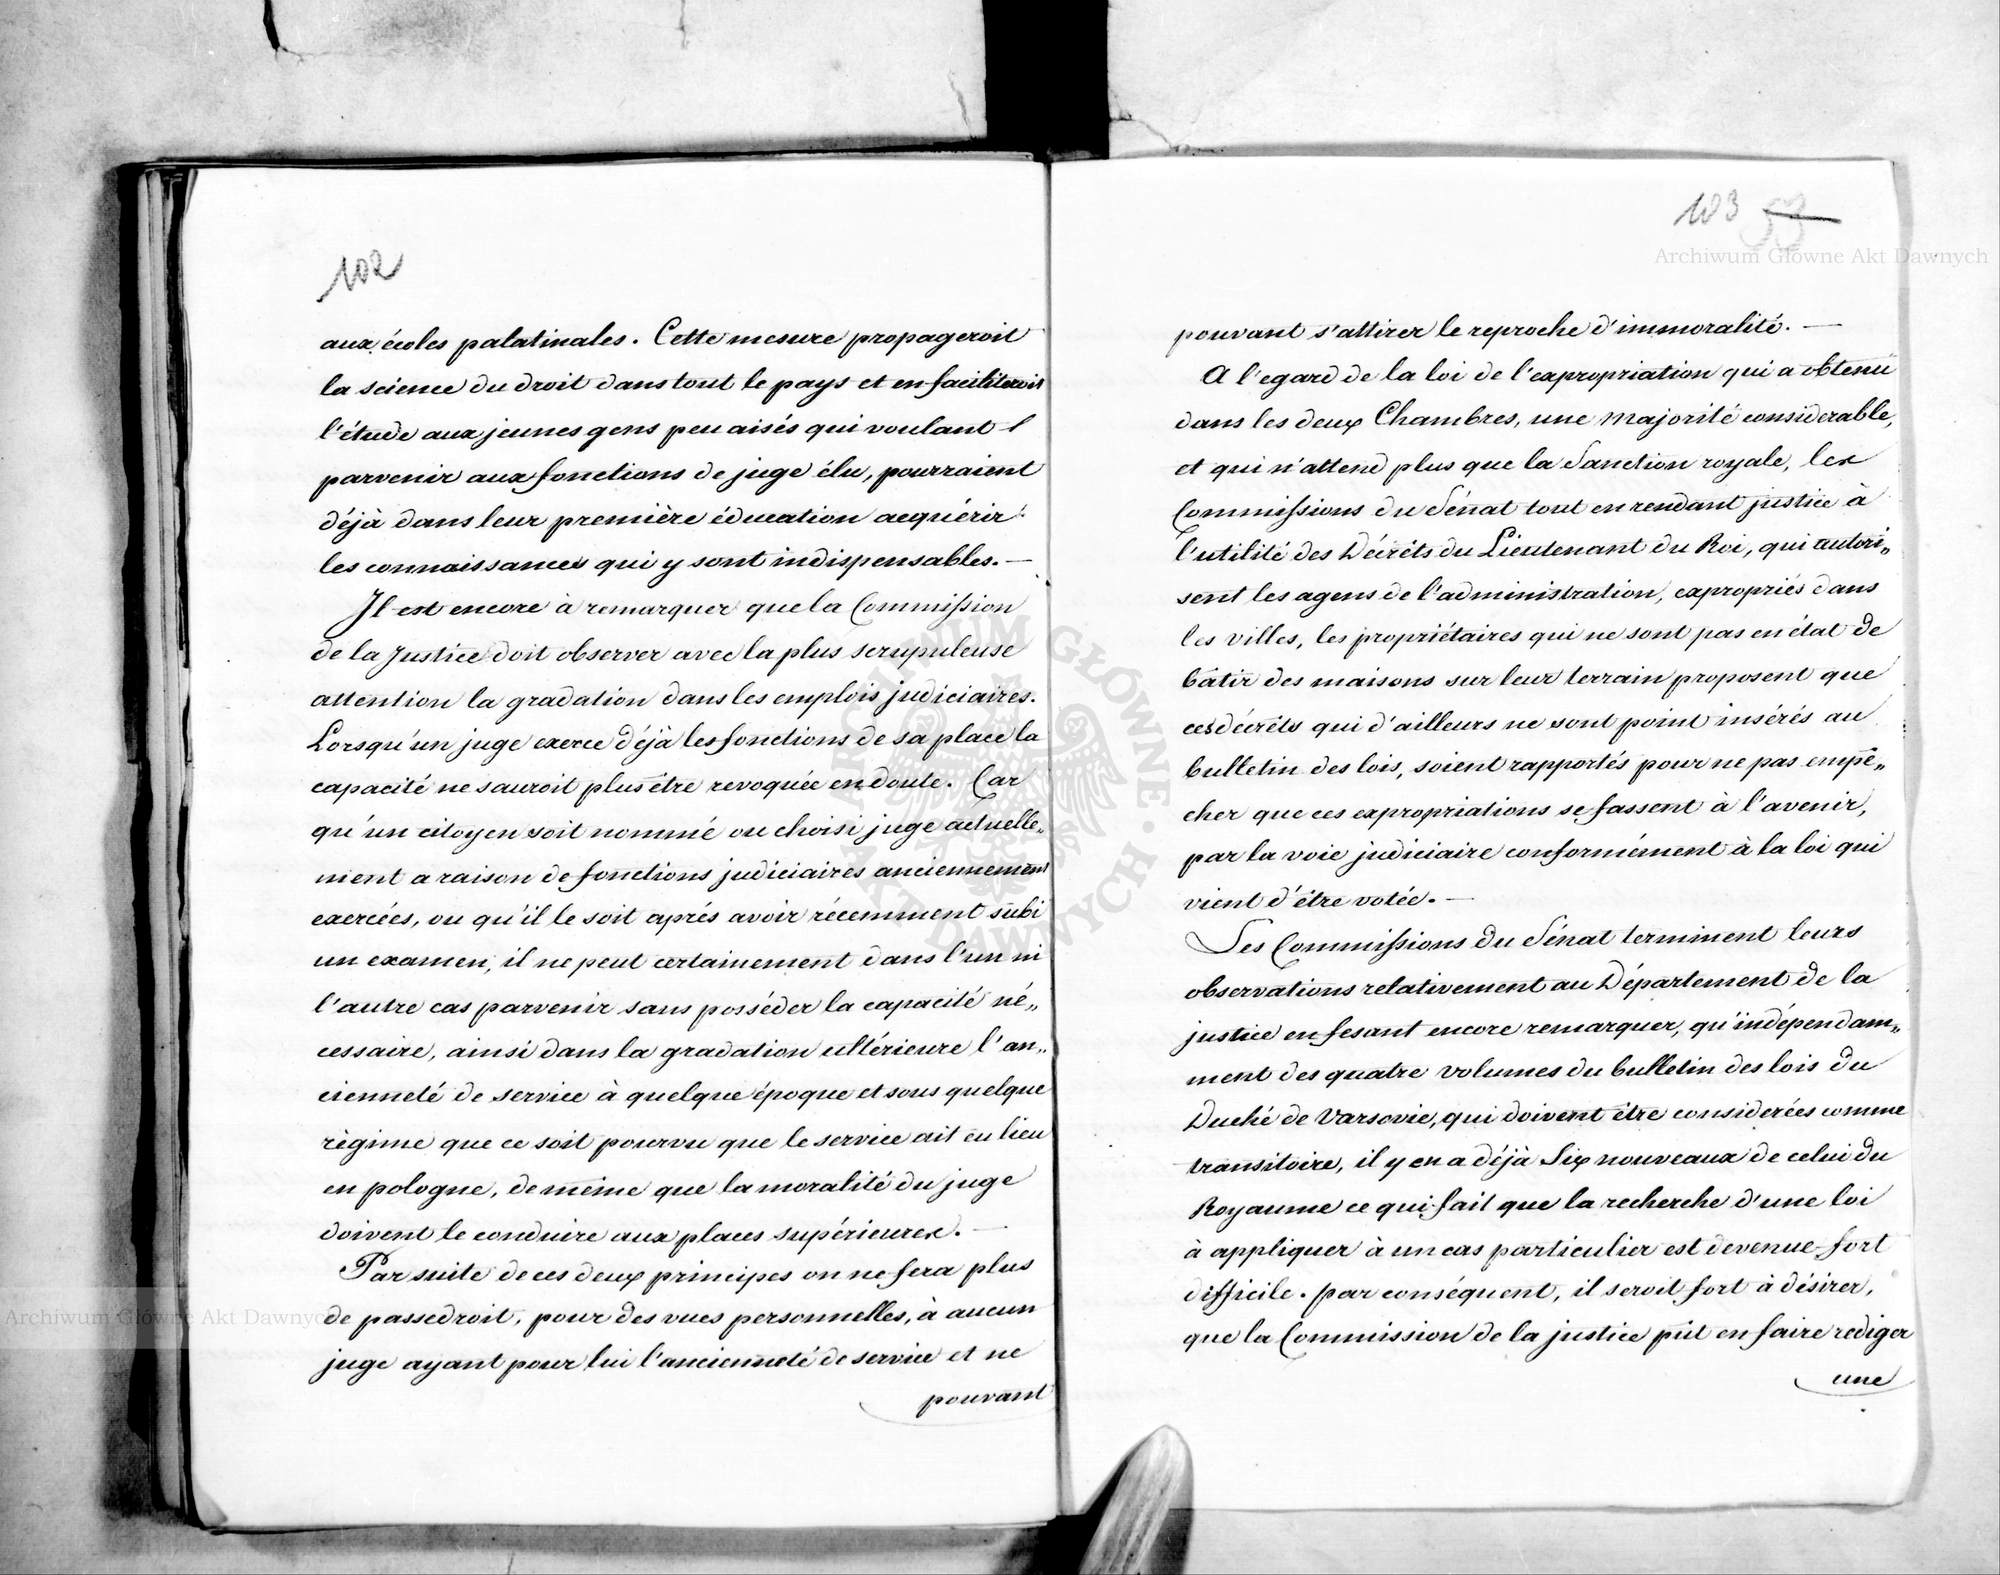 102
aux écoles palatinales. Cette mesure propageroit
la science du droit dans tout le pays et en faciliteroit
l'étude aux jeunes gens peu aisés qui voulant
parvenir aux fonctions de juge élu, pourraient
déjà dans leur première éducation acquérir
les connaissances qui y sont indispensables. —
Il est encore à remarquer que la Commission
de la Justice doit observer avec la plus scrupuleuse
attention la gradation dans les emplois judiciaires.
Lorsqu'un juge exerce déjà les fonctions de sa place la
capacité ne sauroit plus être revoquée en doute. Car
qu'un citoyen soit nommé ou choisi juge actuelle„
ment a raison de fonctions judiciaires anciennement
exercées, ou qu'il le soit aprés avoir récemment subi
un examen, il ne peut certainement dans l'un ni
l'autre cas parvenir sans posséder la capacité né„
cessaire, ainsi dans la gradation ultérieure l'an„
cienneté de service à quelque époque et sous quelque
règime que ce soit pourvu que le service ait eu lieu
en pologne, de même que la moralité du juge
doivent le conduire aux places supérieures. —
Par suite de ces deux principes on ne fera plus
de passedroit, pour des vues personnelles, à aucun
juge ayant pour lui l'ancienneté de service et ne
pouvant
103 53
pouvant s'attirer le reproche d'immoralité. —
A l'egard de la loi de l'expropriation qui a obtenu
dans les deux Chambres, une majorité considerable,
et qui n'attend plus que la Sanction royale, les
Commissions du Sénat tout en rendant justice à
l'utilité des Décrêts du Lieutenant du Roi, qui autori„
sent les agens de l'administration, expropriés dans
les villes, les propriétaires qui ne sont pas en état de
bâtir des maisons sur leur terrain proposent que
ces décrêts qui d'ailleurs ne sont point insérés au
bulletin des lois, soient rapportés pour ne pas empê„
cher que ces expropriations se fassent à l'avenir,
par la voie judiciaire conformément à la loi qui
vient d'être votée. —
Les Commissions du Sénat terminent leurs
observations relativement au Département de la
justice en fesant encore remarquer, qu'indépendam„
ment des quatre volumes du bulletin des lois du
Duché de Varsovie, qui doivent être considerées comme
transitoire, il y en a déjà Six nouveaux de celui du
Royaume ce qui fait que la recherche d'une loi
à appliquer à un cas particulier est devenue fort
difficile. par conséquent, il seroit fort à désirer,
que la Commission de la justice pût en faire rediger
une
Archiwum Główne Akt Dawnych
Archiwum Główne Akt Dawnych
ARCHIWUM GŁÓWNE AKT DAWNYCH